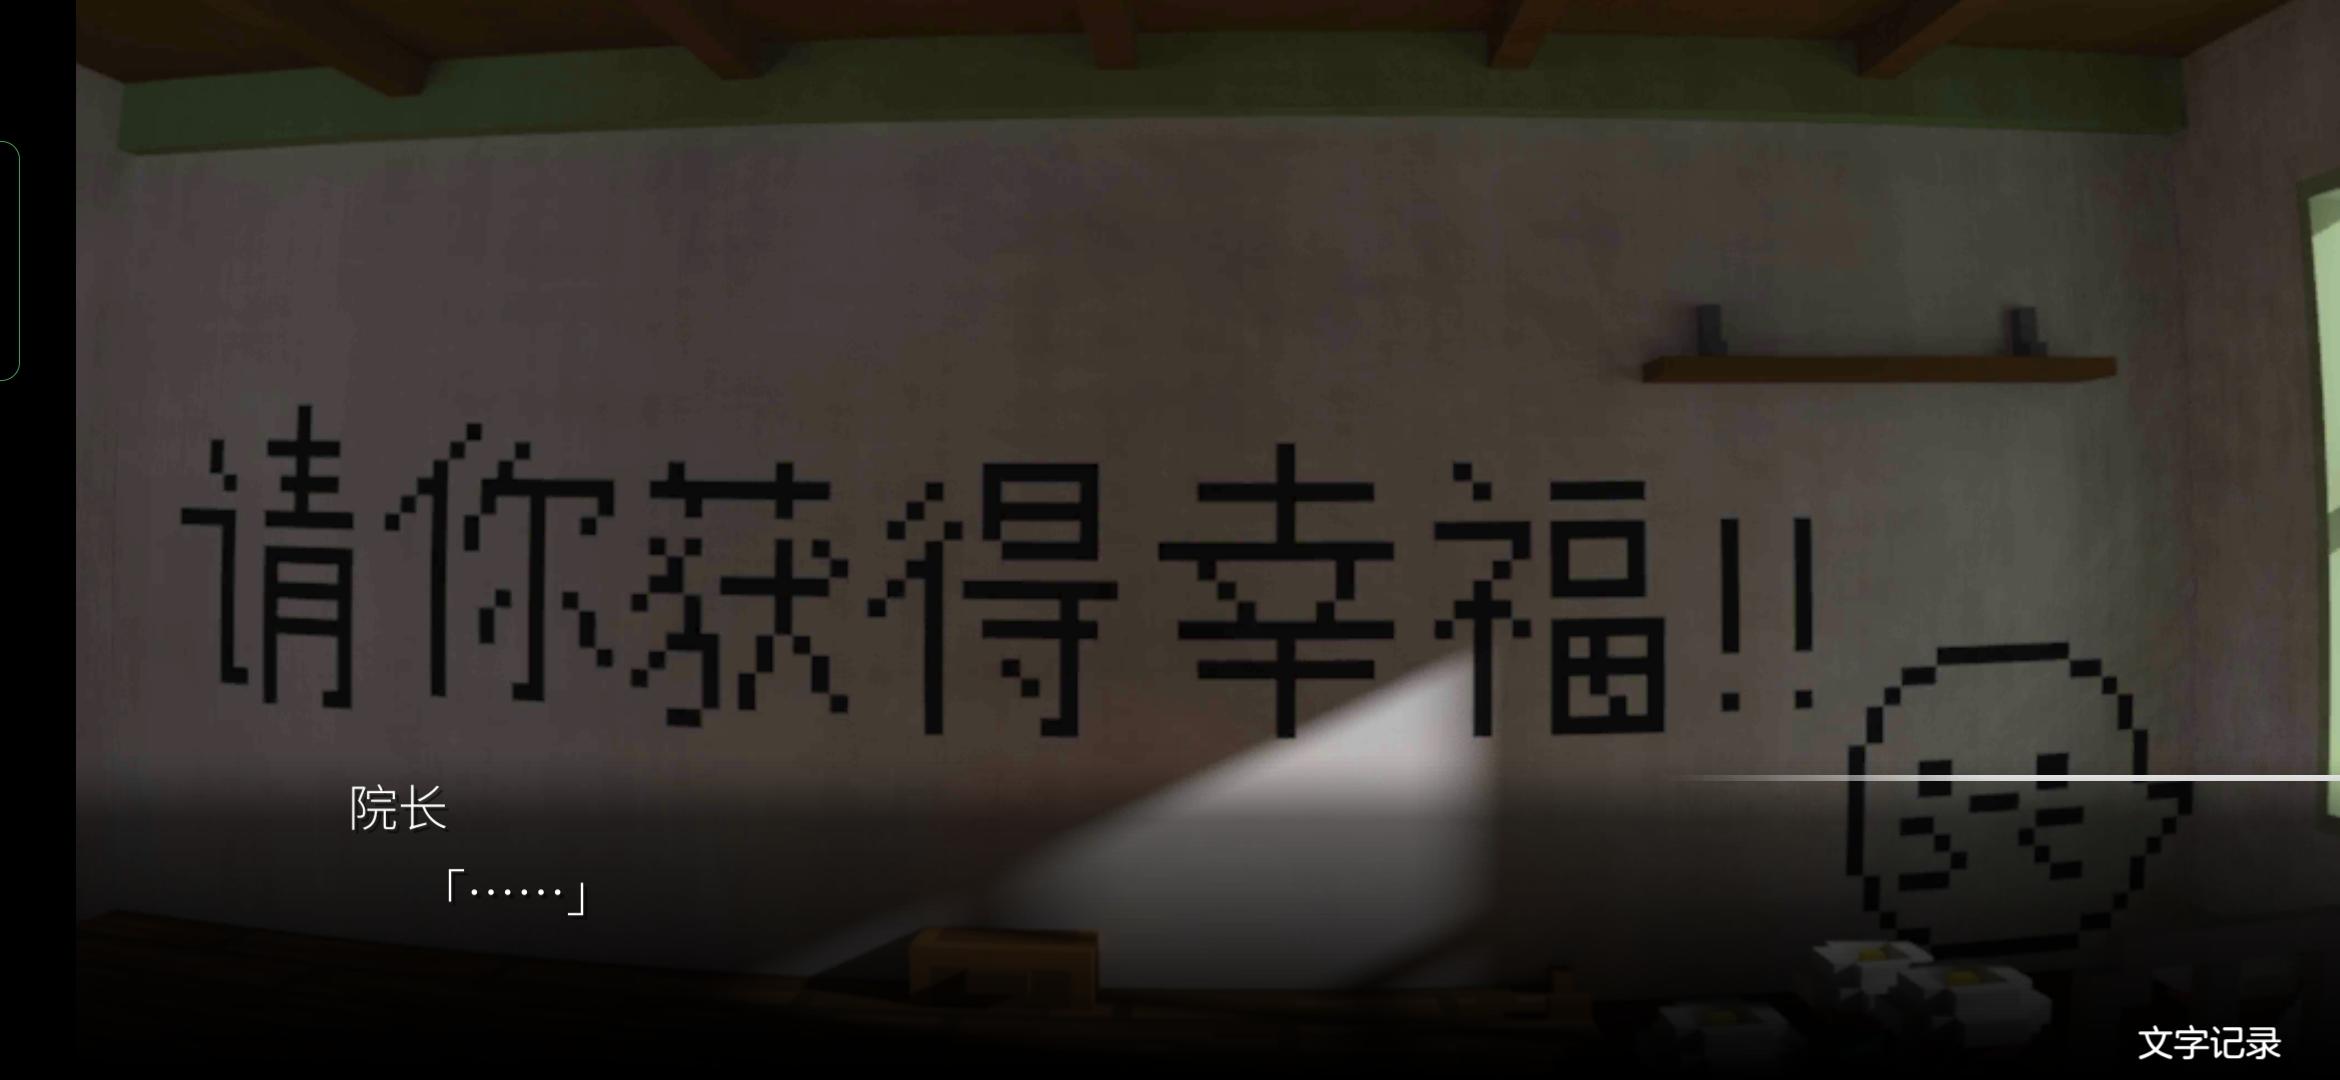 请你获得幸福!!
院长
「……」
文字记录